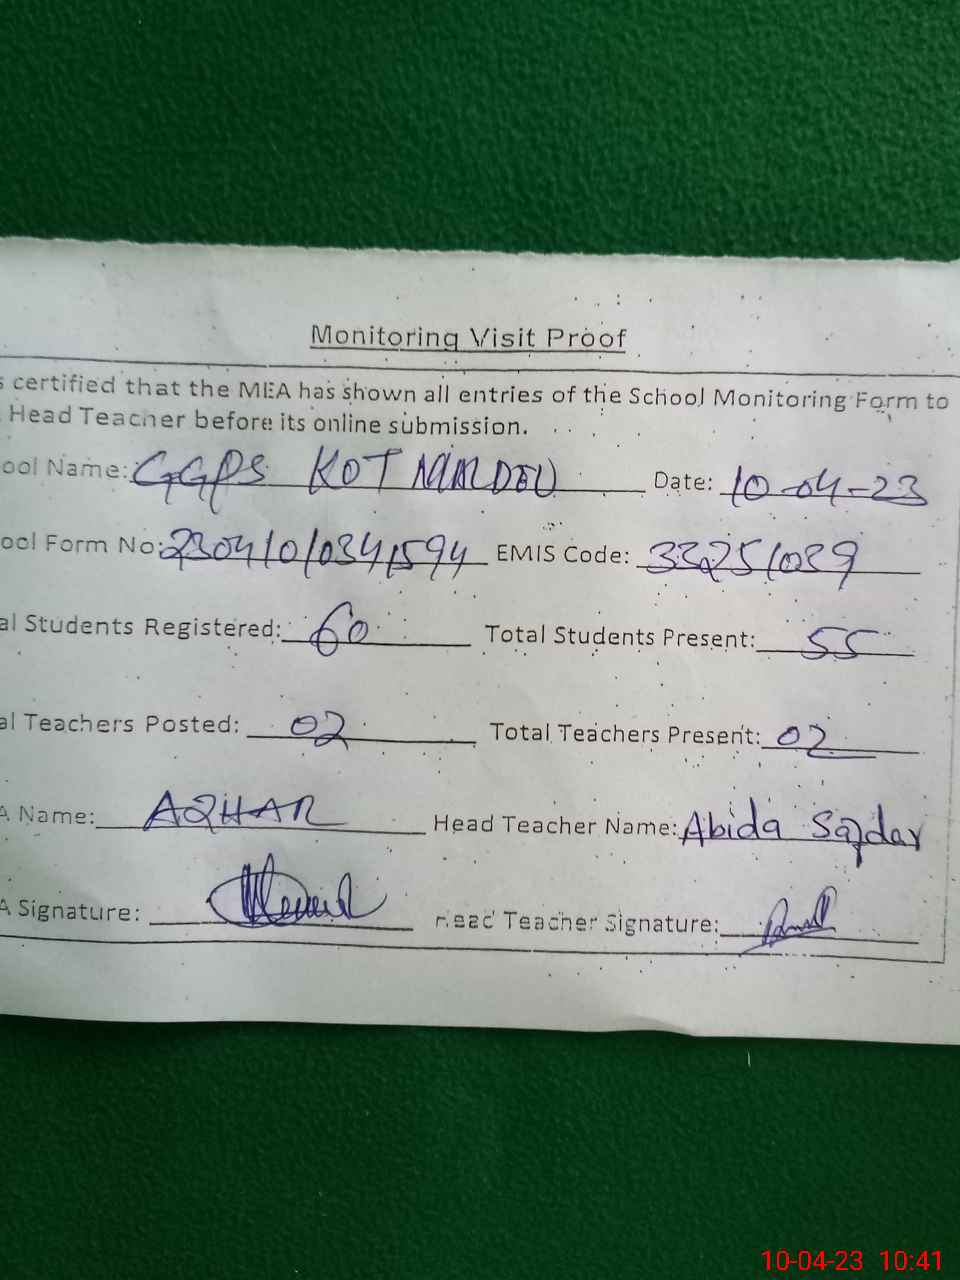 Monitoring Visit Proof
s certified that the MEA has shown all entries of the School Monitoring Form to
Head Teacher before its online submission.
ool Name: GGPS KOT Date: 10-04-23
ool Form No: EMIS Code: 33251039
al Students Registered: 60 Total Students Present: 55
al Teachers Posted: 02 Total Teachers Present: 02
A Name: AZHAR Head Teacher Name: Abida Safdar
A Signature: Head Teacher Signature:
10-04-23 10:41